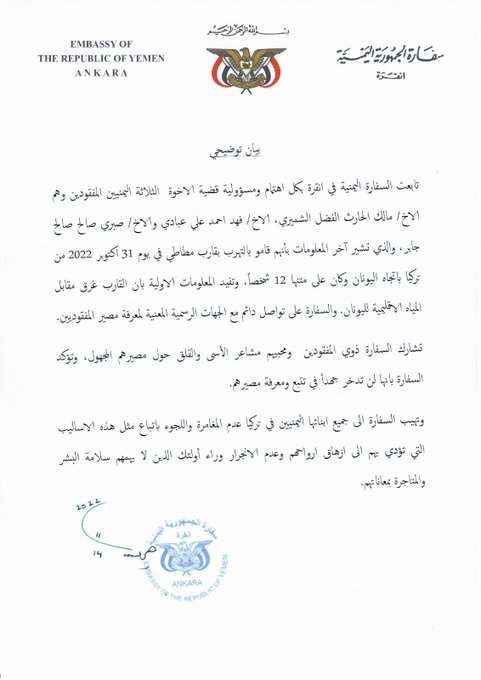 بسم الله الرحمن الرحيم
EMBASSY OF
THE REPUBLIC OF YEMEN
ANKARA
سفارة الجمهورية اليمنية
انقرة
بيان توضيحي
تابعت السفارة اليمنية في انقرة بكل اهتمام ومسؤولية قضية الاخوة الثلاثة اليمنيين المفقودين وهم
الاخ/ مالك الحارث الفضل الشميري، الاخ/ فهد احمد علي عبادي والاخ/ صبري صالح صالح
جابر، والذي تشير آخر المعلومات بأنهم قامو بالتهرب بقارب مطاطي في يوم 31 أكتوبر 2022 من
تركيا باتجاه اليونان وكان على متنها 12 شخصاً، وتفيد المعلومات الاولية بان القارب غرق مقابل
المياه الاقليمية لليونان. والسفارة على تواصل دائم مع الجهات الرسمية المعنية لمعرفة مصير المفقوديين.
تشارك السفارة ذوي المفقودين ومحبيهم مشاعر الأسى والقلق حول مصيرهم المجهول، وتؤكد
السفارة بانها لن تدخر جهداً في تتبع ومعرفة مصيرهم.
وتهيب السفارة الى جميع ابنائها اليمنيين في تركيا عدم المغامرة واللجوء باتباع مثل هذه الاساليب
التي تؤدي بهم الى ازهاق ارواحهم وعدم الانجرار وراء أولئك الذين لا يهمهم سلامة البشر
والمتاجرة بمعاناتهم.
2022
11
14
سفارة الجمهورية اليمنية
انقرة
ANKARA
EMBASSY OF THE REPUBLIC OF YEMEN